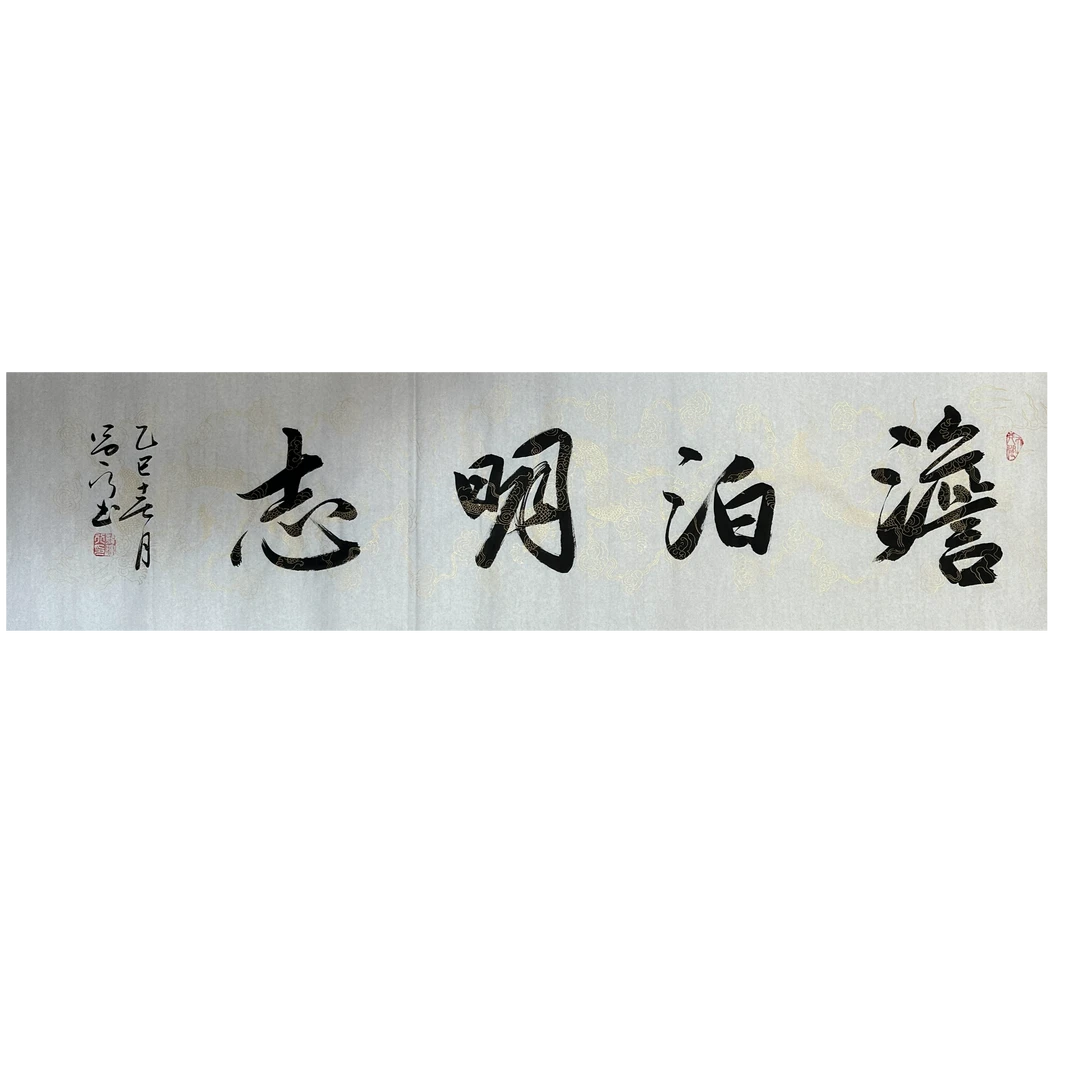 澹泊明志
乙巳十一月
书